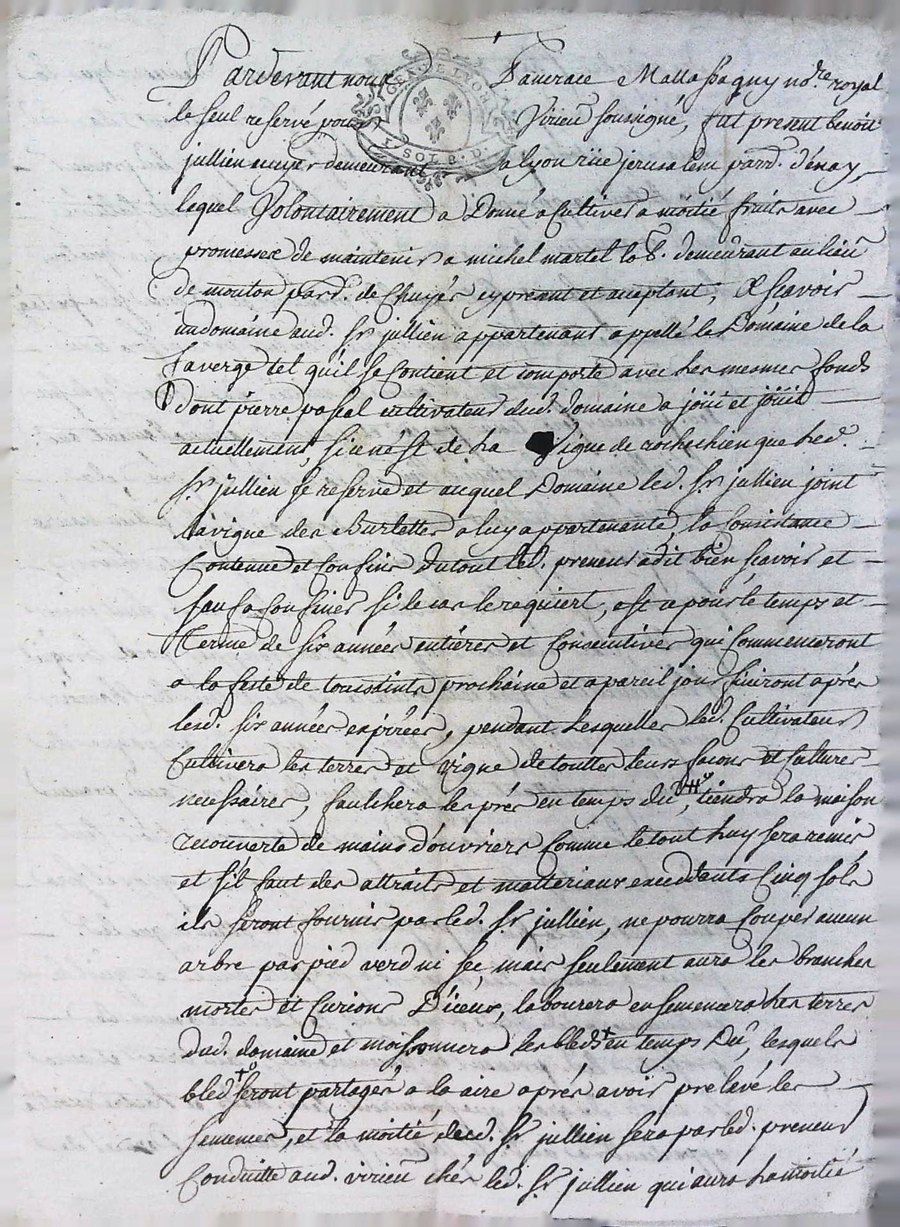 Pardevant nous Mallassagny no.re royal
le seul reservé pour Virieu soussigné, fut present benoit
jullien demeurant a lyon rüe jerusalem parr. d'énay,
lequel Volontairement a Donné a Cultiver a moitié fruits avec
promesse de maintenir a michel martel lab.r demeurant au lieu
de mouton parr. de Chuyér cy present et aceptant, Ascavoir
un domaine aud. Sr jullien appartenant appellé le Domaine de la
faverge tel qu'il se Contient et comporte avec les mesmes fonds
Dont pierre pascal cultivateur dud. domaine a joüi et joüit
actuellement, si cenést de la Vigne de rochechien que led.
Sr jullien se reserve et auquel Domaine led. Sr jullien joint
la vigne des Burlettes a luy appartenante, la Consistance
Contenue et Confins du tout led. preneur a dit bien scavoir et
sauf a Confiner si le cas le requiert, et ce pour le temps et
Terme de six années entières et Consecutives qui Commenceront
a la feste de toussaints prochaine et a pareil jour finiront aprés
lesd. six années expirées, pendant lesquelles led. Cultivateur
Cultivera les terres et vigne de touttes leurs façons et Cultures
necessaires, fauchera les prés en temps du, tiendra la maison
recouverte de mains d'ouvriers Comme le tout luy sera remis
et s'il faut des attraits et matteriaux excedants Cinq sols
ils seront fournis par led. Sr jullien, ne pourra Couper aucun
arbre par pied verd ni sec mais seulement aura les branches
mortes et Curions D'iceux, labourera ensemencera les terres
dud. domaine et moissonnera les bleds en temps Dû, lesquels
bleds seront partagés a la aire aprés avoir prelevé les
semences, et la moitié dud. Sr jullien sera par led. preneur
Conduitte aud. virieu chés led. Sr jullien qui aura la moitié